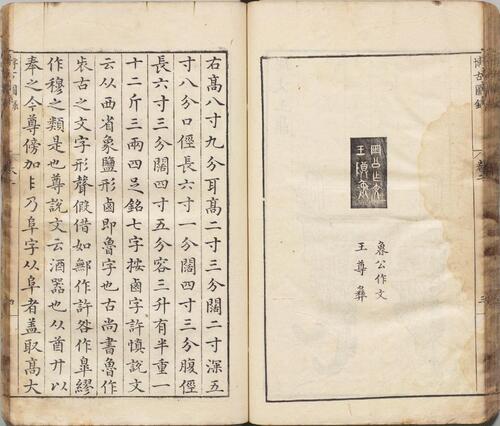 博古圖錄
魯公作文
王尊彝
右高八寸九分耳高二寸三分闊二寸深五
寸八分口徑長六寸一分闊四寸三分腹徑
長六寸三分闊四寸五分容三升有半重一
十二斤三兩四足銘七字按鹵字許慎說文
云从西省象鹽形鹵即魯字也古尚書魯作
古之文字形聲假借如鄦作許咎作皐繆
作穆之類是也尊說文云酒器也从酋廾以
奉之今尊傍加乃阜字从阜者蓋取高大